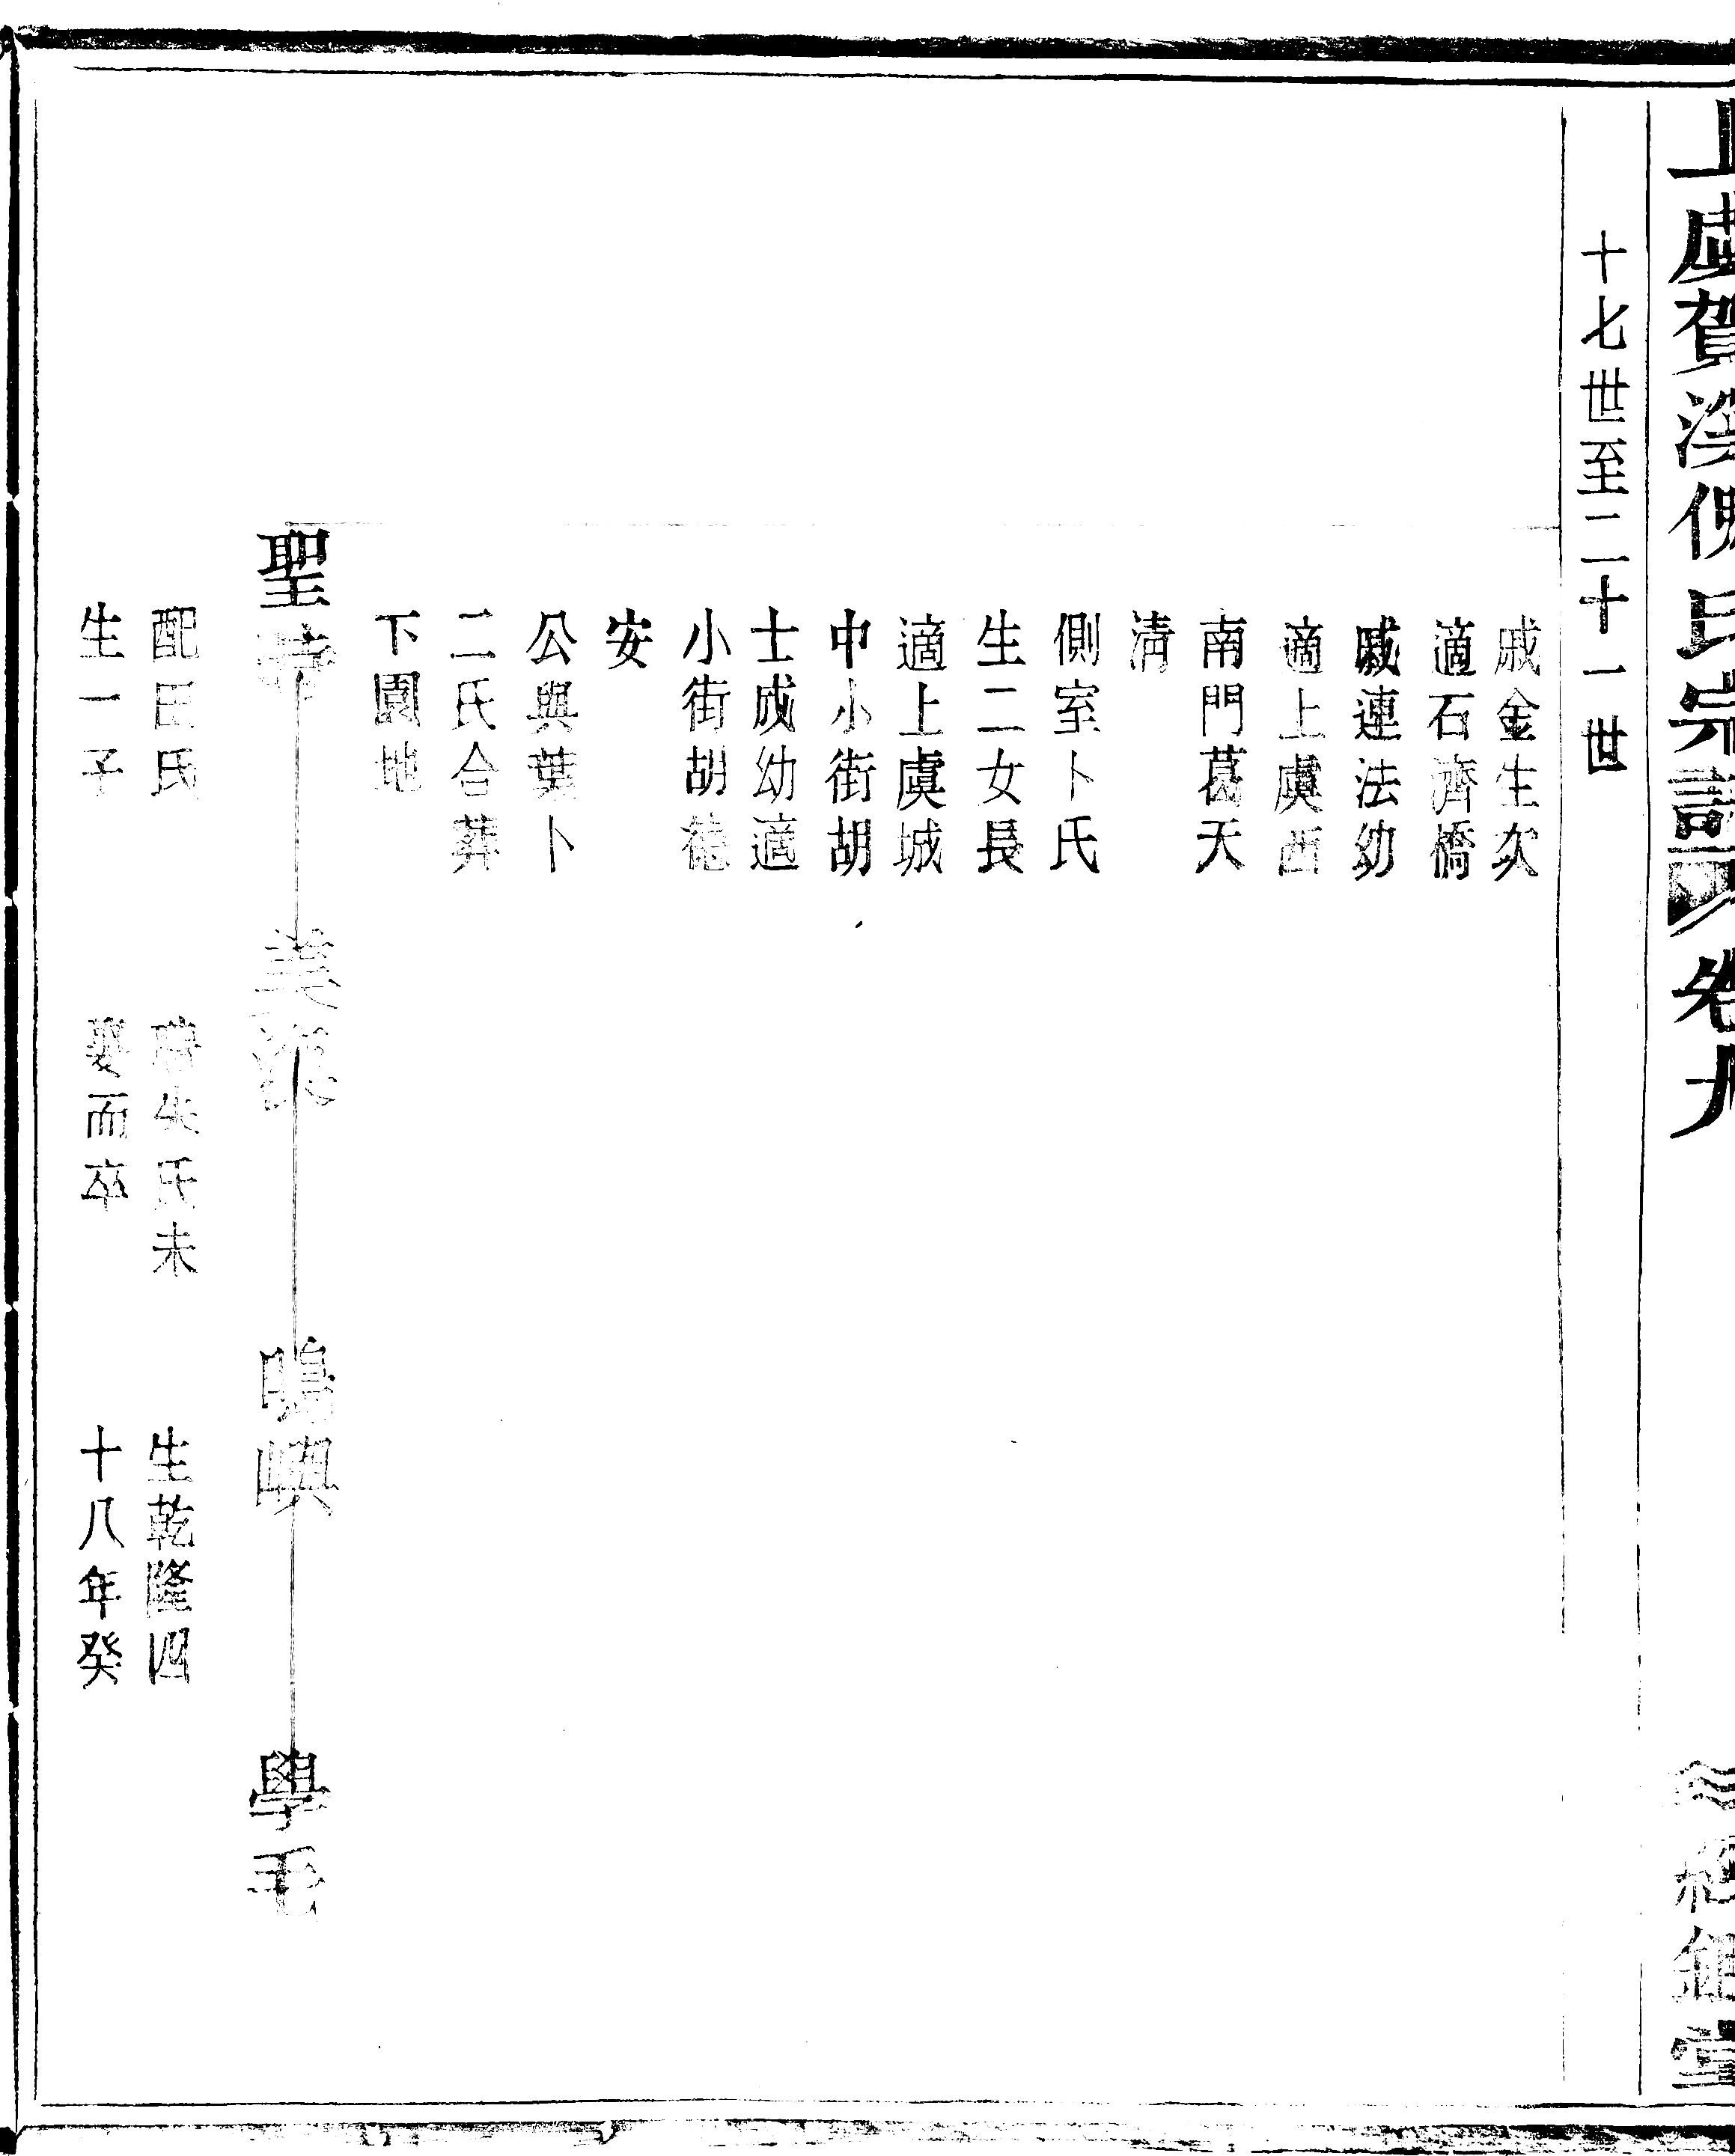 上虞賀溪倪氏宗譜 卷九
十七世至二十一世
戚金生次
適石濟橋
戚連法幼
適上虞西
南門葛天
清
側室卜氏
生二女長
適上虞城
中小街胡
士成幼適
小街胡德
安
公與葉卜
二氏合葬
下園地
聖
美
鳴嶼
學毛
配田氏
生一子
聘朱氏未
娶而卒
生乾隆四
十八年癸